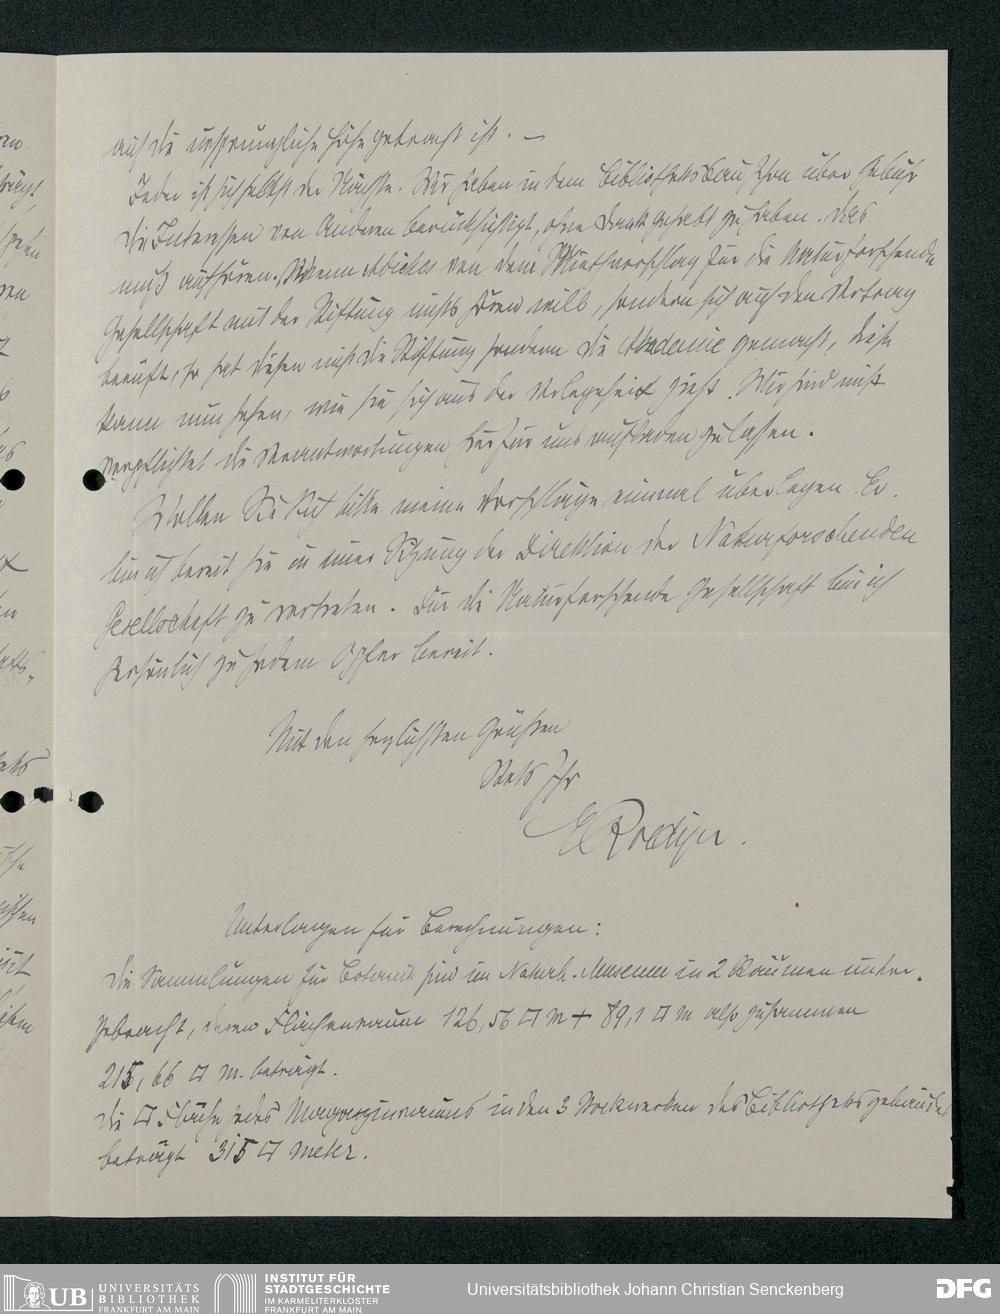 auf die ursprüngliche Höhe gebracht ist. —
Jeder ist sich selbst der Nächste. Wir haben in dem Bibliotheksbau schon über Gebühr
die Interessen von Anderen berücksichtigt, ohne Dank gehabt zu haben. Das
muß aufhören. Wenn Adickes von dem Mietsvorschlag für die Naturforschende
Gesellschaft mit der Stiftung nichts hören will, sondern sich auf den Vertrag
beruft, so hat diesen nicht die Stiftung sondern die Akademie gemacht, diese
kann nun sehen, wie sie sich aus der Verlegenheit zieht. Wir sind nicht
verpflichtet die Verantwortungen hierfür uns aufladen zu lassen.
Wollen Sie sich bitte meine Vorschläge einmal überlegen. Ev.
bin ich bereit sie in einer Sitzung der Direktion der Naturforschenden
Gesellschaft zu vertreten. Für die Naturforschende Gesellschaft bin ich
persönlich zu jedem Opfer bereit.
Mit den herzlichsten Grüßen
Stets Ihr
E Roediger.
Unterlagen für Berechnungen:
Die Sammlungen für Botanik sind im Naturh. Museum in 2 Räumen unter-
gebracht, deren Flächenraum 126,56 □ m + 89,1 □ m also zusammen
215,66 □ m. beträgt.
Die □ Fläche jedes Magazinraums in den 3 Stockwerken des Bibliotheksgebäudes
beträgt 315 □ Meter.
UB UNIVERSITÄTS BIBLIOTHEK FRANKFURT AM MAIN
INSTITUT FÜR STADTGESCHICHTE IM KARMELITERKLOSTER FRANKFURT AM MAIN
Universitätsbibliothek Johann Christian Senckenberg
DFG